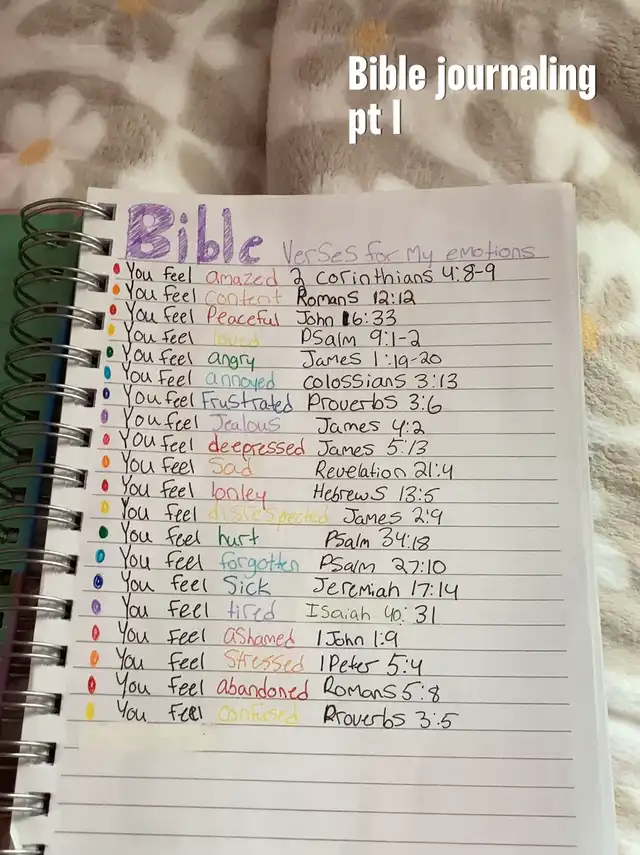 Bible journaling
pt 1
Bible Verses for My emotions
You feel amazed 2 Corinthians 4:8-9
You feel content Romans 12:12
You feel Peaceful John 16:33
You feel loved Psalm 9:1-2
You feel angry James 1:19-20
You feel annoyed colossians 3:13
You feel Frustrated Proverbs 3:6
You feel Jealous James 4:2
You feel deepressed James 5:13
You feel Sad Revelation 21:4
You feel lonley Hebrews 13:5
You feel disrespected James 2:9
You feel hurt Psalm 34:18
You feel forgotten Psalm 27:10
You feel Sick Jeremiah 17:14
You feel tired Isaiah 40:31
You feel ashamed 1 John 1:9
You feel Stressed 1 Peter 5:4
You feel abandoned Romans 5:8
You feel confused Proverbs 3:5